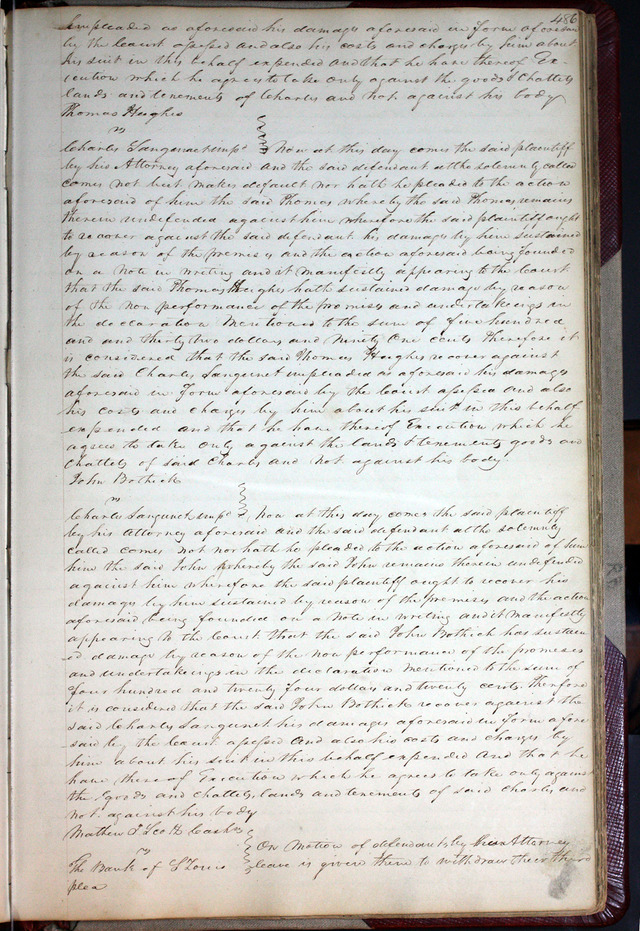 486
Impleaded as aforesaid his damages aforesaid in Form aforesaid
by the Court assessed and also his costs and charges by him about
his suit in this behalf expended and that he have thereof Ex-
ecution which he agrees to take only against the goods Chattels
lands and tenements of Charles and not against his body
Thomas Hughes
vs
Charles Sanguenet impd Now at this day comes the said plaintiff
by his Attorney aforesaid and the said defendant altho solemnly called
comes not but makes default nor hath he pleaded to the action
aforesaid of him the said Thomas whereby the said Thomas remains
therein undefended against him wherefore the said plaintiff ought
to recover against the said defendant his damages by him sustained
by reason of the premises and the action aforesaid being founded
on a Note in writing and it Manifestly appearing to the Court
that the said Thomas Hughes hath sustained damage by reason
of the non performance of the promises and undertakeings in
the declaration Mentioned to the sum of five hundred
and and thirty two dollars and Ninety One cents Therefore it
is considered that the said Thomas Hughes recover against
the said Charles Sanguenet impleaded as aforesaid his damages
aforesaid in Form aforesaid by the Court assessed and also
his costs and charges by him about his suit in this behalf
expended and that he have thereof Execution which he
agrees to take only against the lands & tenements goods and
Chattels of said Charles and not against his body
John Bothick
vs
Charles Sangunet impd Now at this day comes the said plaintiff
by his Attorney aforesaid and the said defendant altho solemnly
called comes not nor hath he pleaded to the action aforesaid of him
him the said John whereby the said John remains therein undefended
against him wherefore the said plaintiff ought to recover his
damages by him sustained by reason of the premises and the action
aforesaid being founded on a Note in writing and it manifestly
appearing to the Court that the said John Bothick has sustain
ed damage by reason of the non performance of the promises
and undertakeings in the declaration mentioned to the sum of
four hundred and twenty four dollars and twenty cents. Therefore
it is considered that the said John Bothick recover against the
said Charles Sangunet his damages aforesaid in Form afore
said by the Court assessed and also his costs and charges by
him about his suit in this behalf expended And that he
have there of Execution which he agrees to take only against
the goods and chattels lands and tenements of said Charles and
not against his body
Mathew T Scott Cashr
vs
On Motion of defendants by their Attorney
The Bank of St Louis leave is given them to withdraw their third
plea